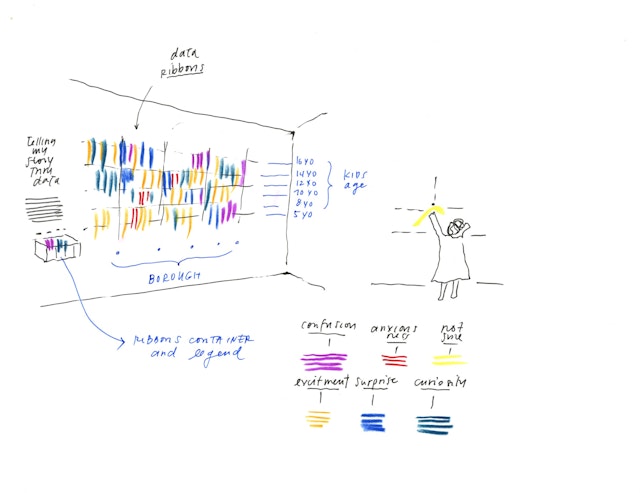 data
RIBBONS
telling
my
story
thru
data
16 YO
14 YO
12 YO
10 YO
8 YO
5 YO
KIDS
age
BOROUGH
RIBBONS CONTAINER
and legend
confusion
anxious
ness
not
sure
excitment
surprise
curiosity